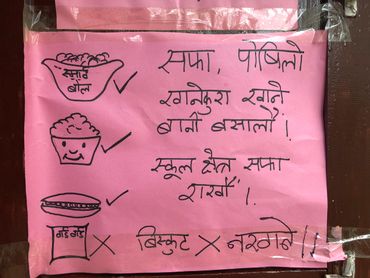 सफा, पोषिलो
खानेकुरा खाने
बानी बसालौं!
स्कूल क्षेत्र सफा
राखौं!
बिस्कुट × नखाने!!
स्मार्ट
बोल
वाई वाई